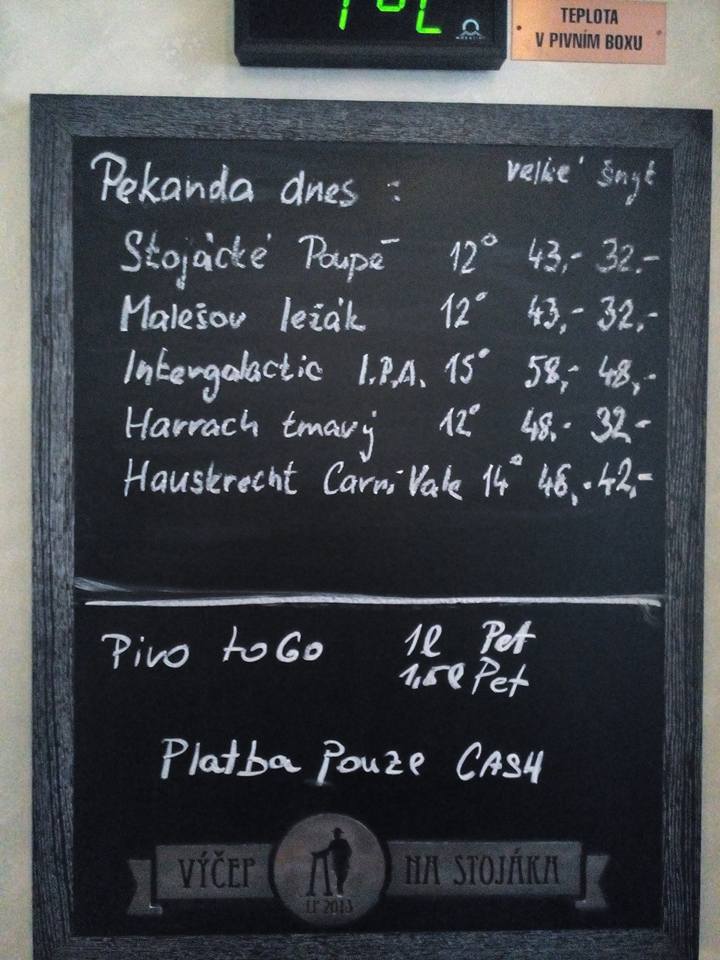 TEPLOTA
V PIVNÍM BOXU
Pekanda dnes : velké šnyt
Stojácké Poupě 12° 43,- 32.-
Malešov ležák 12° 43,- 32,-
Intergalactic I.P.A. 15° 58,- 48,-
Harrach tmavý 12° 48.- 32-
Hauskrecht Carni Vale 14° 46,- 42,-
Pivo toGo 1l Pet
1,5l Pet
Platba Pouze CASH
VÝČEP NA STOJÁKA
LP 2013